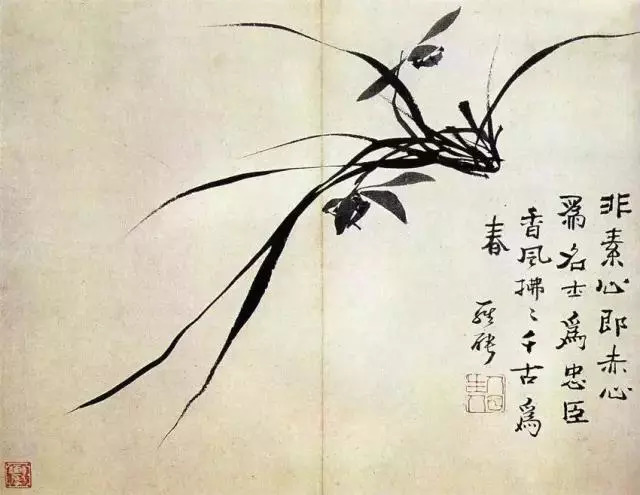 非素心即赤心
爲名士爲忠臣
香風拂〻千古爲
春
羅聘